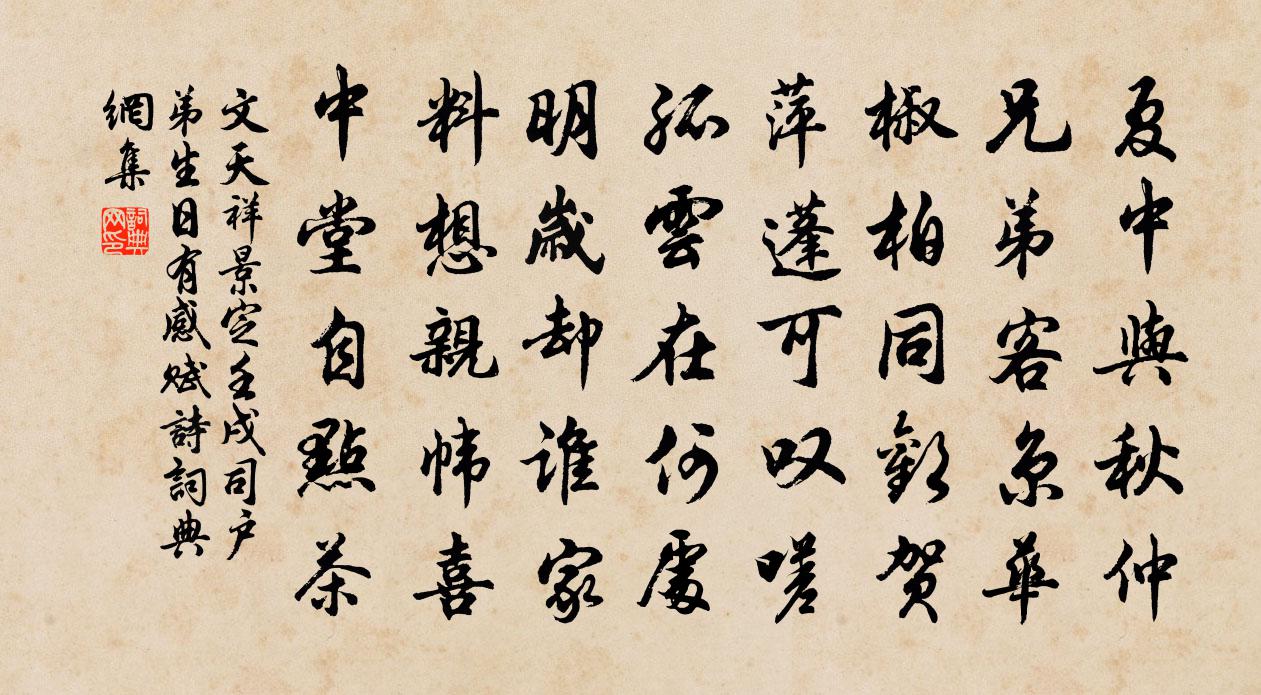 夏中與秋仲
兄弟客京華
椒柏同歡賀
萍蓬可叹嗟
孤雲在何處
明歲却誰家
料想親帏喜
中堂自點茶
文天祥景定壬戌司户
弟生日有感赋詩詞典
網集
詞典网印